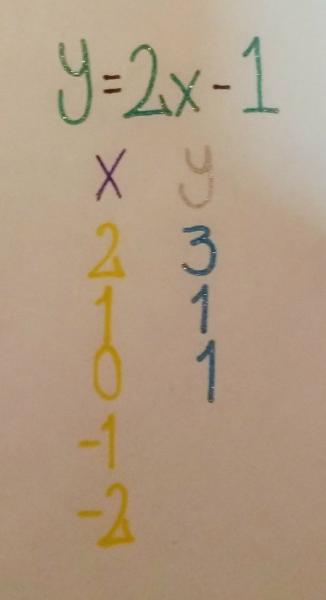 y=2x-1
x y
2 3
1 1
0 1
-1
-2